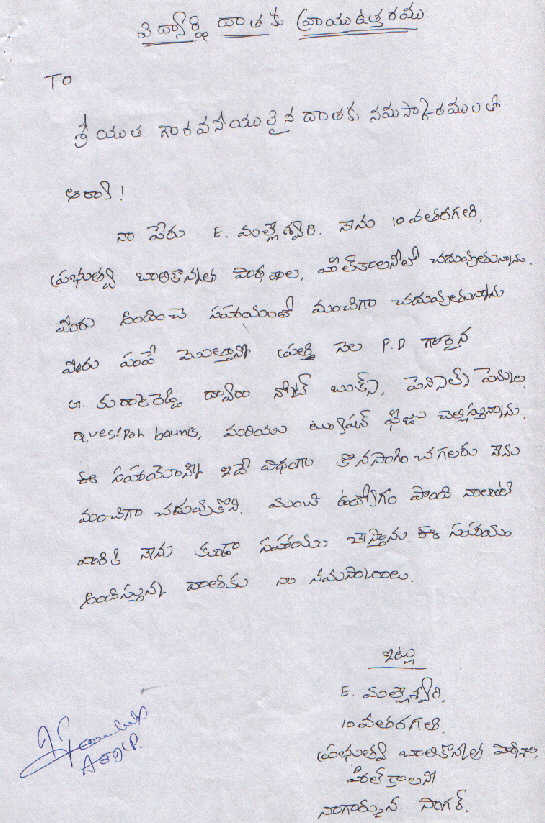 విద్యార్థి దాతకు ప్రాయు ఉత్తరము
TO
శ్రీయుత గౌరవనీయులైన దాతకు నమస్కారములతో
ఆరాకి!
నా పేరు E. మల్లేశ్వరి. నేను 10వతరగతి.
ప్రభుత్వ బాలికొన్నత పాఠశాల, హిల్‌కాలనీలో చదువుతున్నాను.
మీరు అందించే సహాయంతో మంచిగా చదువుతున్నాను
మీరు పంపే మొత్తాన్ని ప్రతి నెల P.D గారైన
G. కు ద్వారా నోట్ బుక్స్, పెన్సిల్స్ పెన్నులు,
మరియు ట్యూషన్ ఫీజు చెల్లిస్తున్నాను.
ఈ సహాయాన్ని ఇదే విధంగా కొనసాగించగలరు నేను
మంచిగా చదువుకొని. మంచి ఉద్యోగం పొంది నాలాంటి
వారికి నేను కూడా సహాయం చేస్తాను ఈ సహాయం
అందిస్తున్న దాతకు నా నమస్కారాలు.
ఇట్లు
E. మల్లేశ్వరి.
10వతరగతి.
ప్రభుత్వ బాలికొన్నత పాఠశాల,
హిల్‌కాలని
నాగార్జున సాగర్.